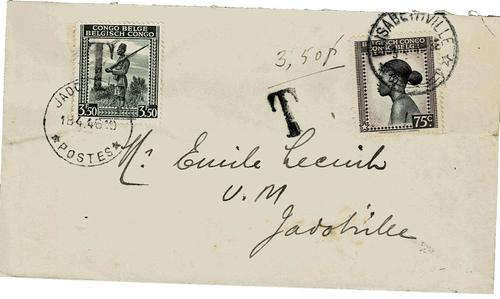 CONGO BELGE
BELGISCH CONGO
3,50 3,50
BELGISCH CONGO
CONGO BELGE
75c
3,50f
T
18.4.46
★ POSTES ★
ISABETHVILLE ★
Mr. Emile
U.M
Jadotville